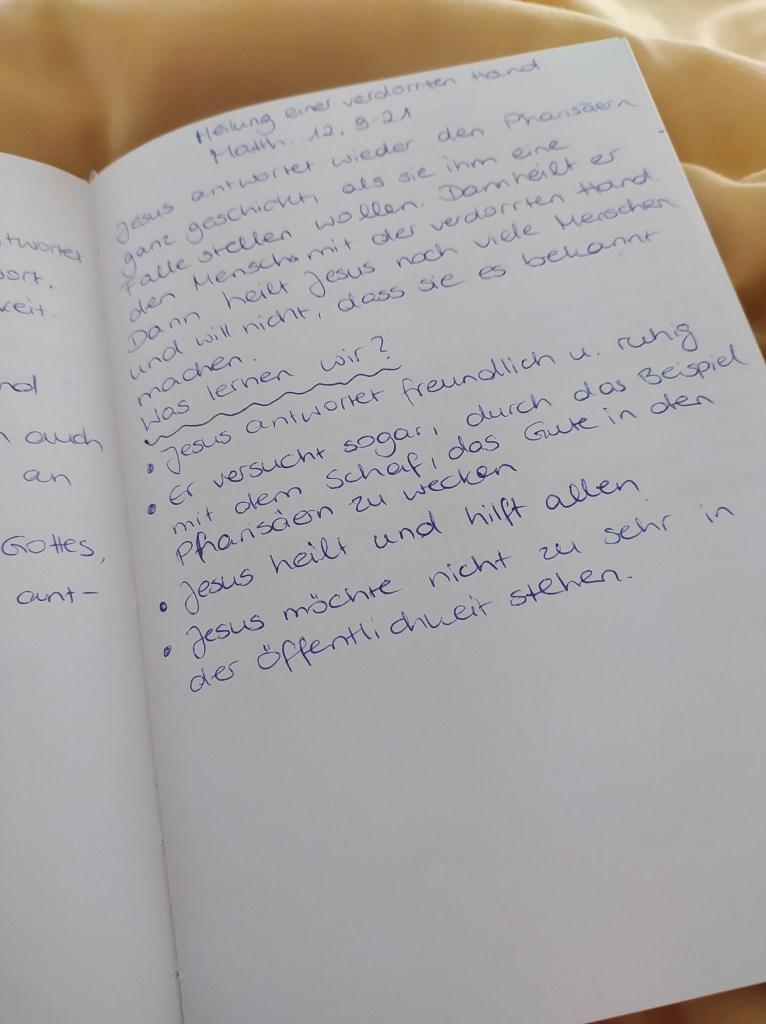 twortet
ort.
keit.
nd
n auch
an
Gottes,
ant-
Heilung einer verdorrten Hand
Matth. 12, 9-21
Jesus antwortet wieder den Pharisäern
ganz geschickt, als sie ihm eine
Falle stellen wollen. Dann heilt er
den Menschen mit der verdorrten Hand.
Dann heilt Jesus noch viele Menschen
und will nicht, dass sie es bekannt
machen.
Was lernen wir?
• Jesus antwortet freundlich u. ruhig
• Er versucht sogar, durch das Beispiel
mit dem Schaf, das Gute in den
Pharisäern zu wecken
• Jesus heilt und hilft allen.
• Jesus möchte nicht zu sehr in
der Öffentlichkeit stehen.